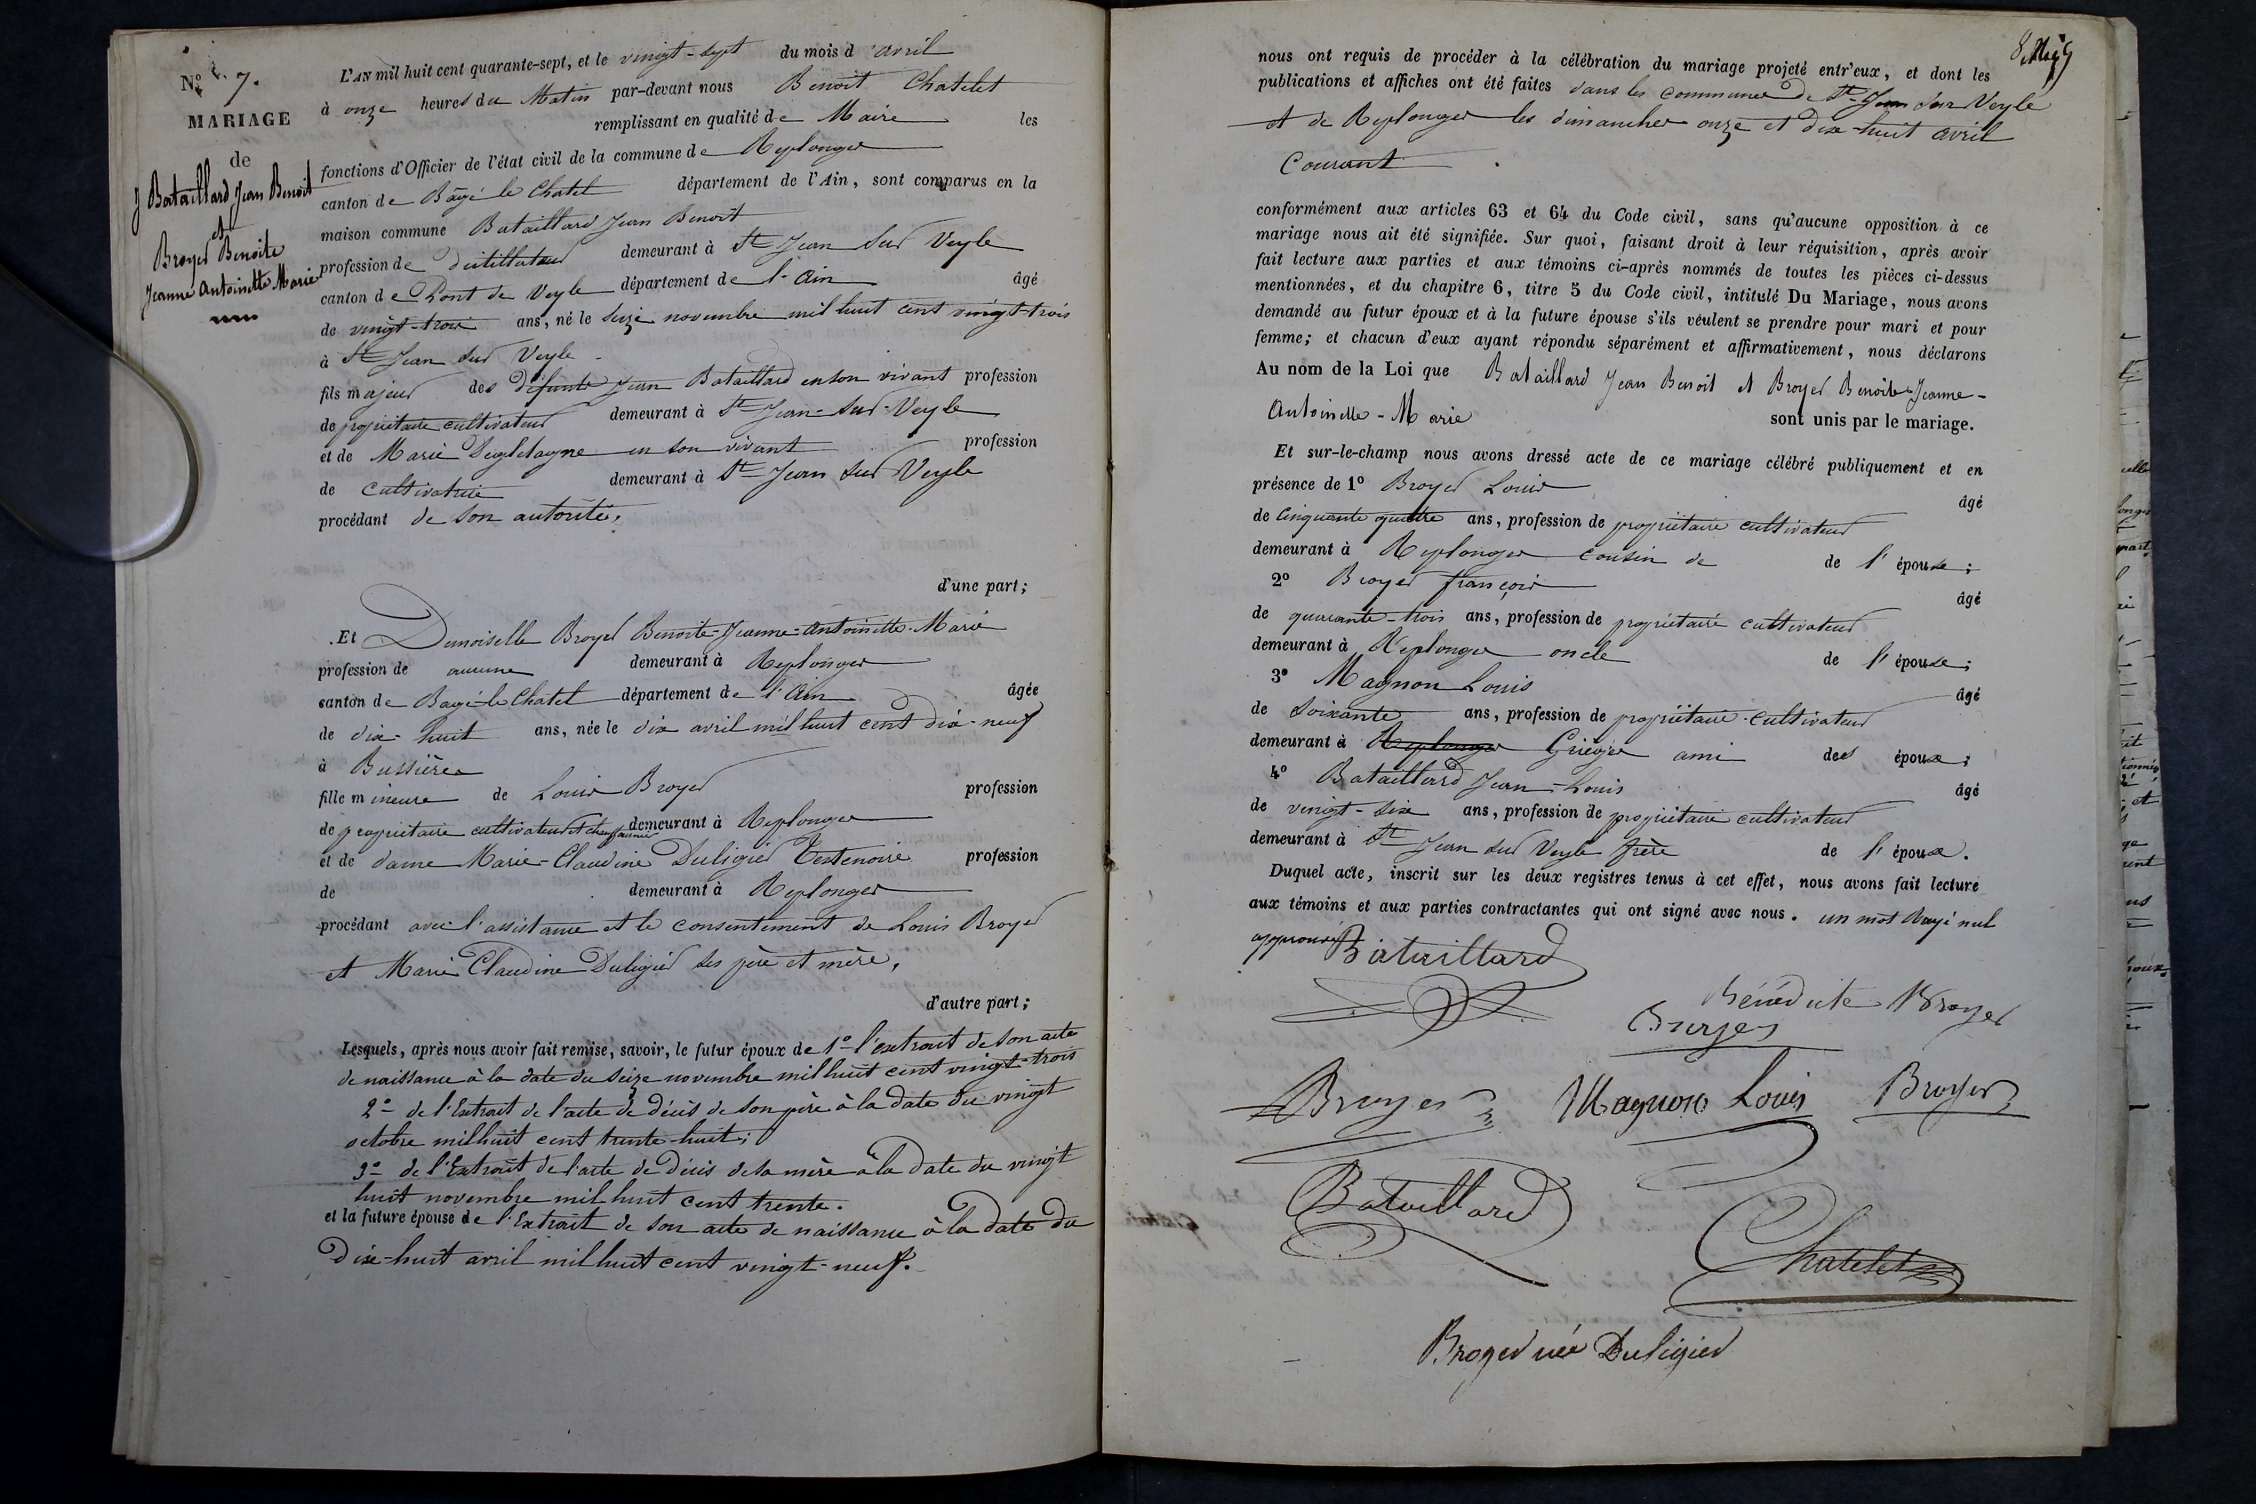 Nº 7.
MARIAGE
de
Bataillard Jean Benoit
et
Broyer Benoite
Jeanne Antoinette Marie
L'AN mil huit cent quarante-sept, et le vingt-sept du mois d'avril
à onze heures du Matin par-devant nous Benoit Chatelet
remplissant en qualité de Maire les
fonctions d'Officier de l'état civil de la commune de Replonges
canton de Bâgé le Chatel département de l'Ain, sont comparus en la
maison commune Bataillard Jean Benoit
profession de distillateur demeurant à St Jean Sur Veyle
canton de Pont de Veyle département de l'Ain âgé
de vingt-trois ans, né le seize novembre mil huit cent vingt-trois
à St Jean sur Veyle
fils majeur des défunts Jean Bataillard en son vivant profession
de propriétaire cultivateur demeurant à St Jean-Sur-Veyle
et de Marie en son vivant profession
de cultivatrice demeurant à St Jean sur Veyle
procédant de son autorité,
d'une part;
Et Demoiselle Broyer Benoite-Jeanne-Antoinette-Marie
profession de aucune demeurant à Replonges
canton de Bagé-le-Chatel département de l'Ain âgée
de dix-huit ans, née le dix avril mil huit cent dix-neuf
à Bussières
fille mineure de Louis Broyer profession
de propriétaire cultivateur et chaufournier demeurant à Replonges
et de dame Marie-Claudine Duligier Testenoire profession
de demeurant à Replonges
procédant avec l'assistance et le consentement de Louis Broyer
et Marie Claudine Duligier ses père et mère,
d'autre part;
Lesquels, après nous avoir fait remise, savoir, le futur époux de 1º l'extrait de son acte
de naissance à la date du seize novembre mil huit cent vingt-trois
2º de l'Extrait de l'acte de décès de son père à la date du vingt
octobre mil huit cent trente-huit;
3º de l'Extrait de l'acte de décès de sa mère à la date du vingt
huit novembre mil huit cent trente.
et la future épouse de l'Extrait de son acte de naissance à la date du
Dix-huit avril mil huit cent vingt-neuf.
8
nous ont requis de procéder à la célébration du mariage projeté entr'eux, et dont les
publications et affiches ont été faites dans les communes de St-Jean sur Veyle
et de Replonges les dimanches onze et dix-huit avril
Courant
conformément aux articles 63 et 64 du Code civil, sans qu'aucune opposition à ce
mariage nous ait été signifiée. Sur quoi, faisant droit à leur réquisition, après avoir
fait lecture aux parties et aux témoins ci-après nommés de toutes les pièces ci-dessus
mentionnées, et du chapitre 6, titre 5 du Code civil, intitulé Du Mariage, nous avons
demandé au futur époux et à la future épouse s'ils veulent se prendre pour mari et pour
femme; et chacun d'eux ayant répondu séparément et affirmativement, nous déclarons
Au nom de la Loi que Bataillard Jean Benoit et Broyer Benoite-Jeanne-
Antoinette-Marie sont unis par le mariage.
Et sur-le-champ nous avons dressé acte de ce mariage célébré publiquement et en
présence de 1º Broyer Louis âgé
de Cinquante quatre ans, profession de propriétaire cultivateur
demeurant à Replonges cousin de de l'épouse;
2º Broyer françois âgé
de quarante-trois ans, profession de propriétaire cultivateur
demeurant à Replonges oncle de l'épouse;
3º Magnon Louis âgé
de soixante ans, profession de propriétaire-cultivateur
demeurant à Replonges Grièges ami des époux;
4º Bataillard Jean-Louis âgé
de vingt-six ans, profession de propriétaire cultivateur
demeurant à St Jean sur Veyle frère de l'époux.
Duquel acte, inscrit sur les deux registres tenus à cet effet, nous avons fait lecture
aux témoins et aux parties contractantes qui ont signé avec nous. un mot Rayé nul
approuvé
Bataillard
Bénédicte Broyer
Broyer
Broyer Magnon Louis Broyer
Bataillard
Chatelet
Broyer née Duligier